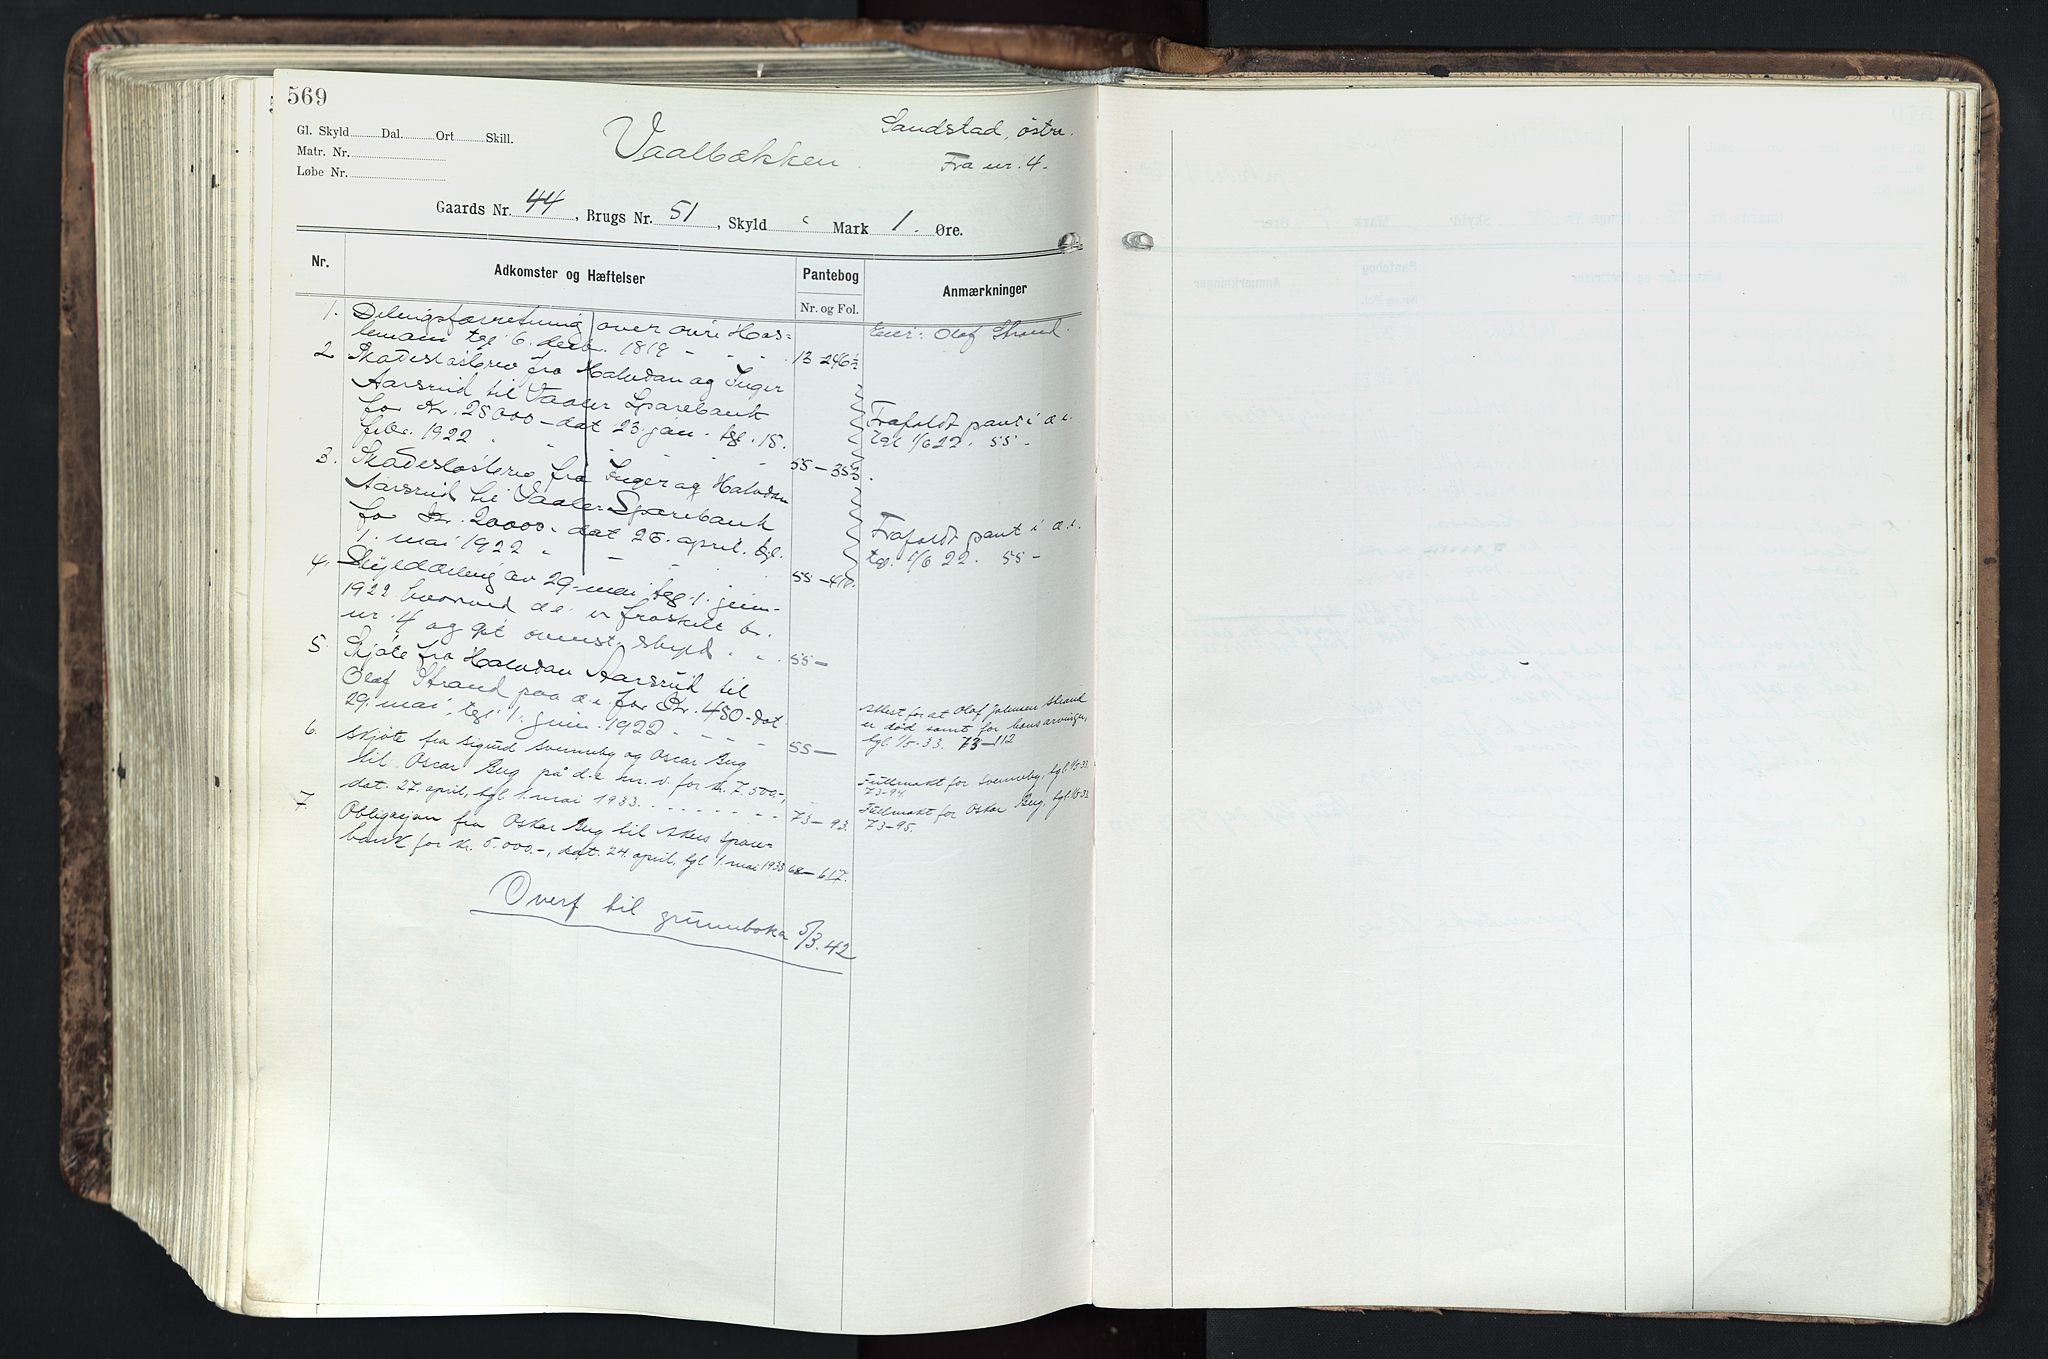 569
Gl. Skyld Dal. Ort Skill.
Matr. Nr.
Løbe Nr.
Vaalbækken.
Sandstad, östre.
Fra nr. 4.
Gaards Nr. 44, Brugs Nr. 51, Skyld Mark 1. Øre.
Nr.
Adkomster og Hæftelser
Pantebog
Nr. og Fol.
Anmærkninger
1. Delingsforretning over övre Has-
lemoen tgl. 6. decb. 1819 - - - 13-246½
Eier: Olaf Strand.
2. Skadeslösbrev fra Halvdan og Inger
Aarsrud til Vaaler Sparebank
for Kr. 25000 - dat 23. jan. tgl. 15.
febr. 1922 55-353
Frafaldt pant i d. e.
tgl 1/6 22. 55-
3. Skadeslösbrev fra Inger og Halvdan
Aarsrud til Vaaler Sparebank
for Kr. 20000.- dat 26. april. tgl.
1. mai 1922 55-410.
Frafaldt pant i d. e.
tgl. 1/6 22. 55-
4. Skylddeling av 29. mai, tgl 1. juni
1922 hvorved d. e. er fraskilt br.
nr. 4 og git ovenst. skyld. 55-
5. Skjöte fra Halvdan Aarsrud til
Olaf Strand paa d. e. for Kr. 450- dat
29. mai, tgl. 1. juni. 1922 - - - - 55-
Attest for at Olaf Johnsen Strand
er död samt for hans arvinger,
tgl. 1/5-33. 73-112
6. Skjöte fra Sigurd Svenneby og Oscar Bug
til Oscar Bug på d. e. m. v. for kr. 7.500.-,
dat. 27. april, tgl. 1. mai 1933 - - - - - 73-93.
Fullmakt for Svenneby, tgl. 1/5-33
73-94.
Fullmakt for Oskar Bug, tgl. 1/5-33
73-95.
7. Obligasjon fra Oskar Bug til Åsnes spare-
bank for kr. 5.000.-, dat. 24. april, tgl. 1. mai 1933 68-617.
Overf til grunnboka 5/3.42